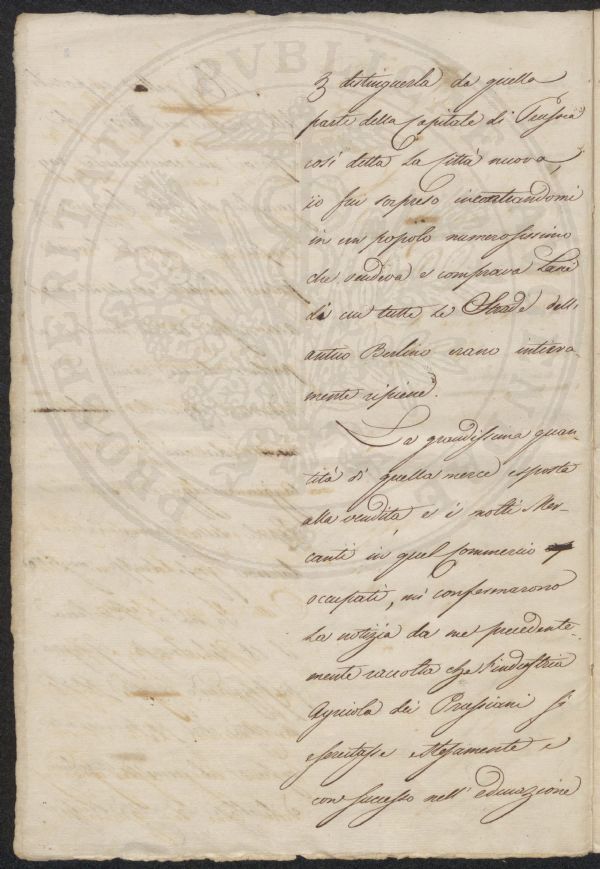 p distinguerla da quella
parte della Capitale di Prussia
così detta La Città nuova,
io fui sorpreso incontrandomi
in un popolo numerosissimo
che vendeva e comprava Lane
di cui tutte Le Strade dell'
antico Berlino erano intiera-
mente ripiene.
La grandissima quan-
tità di quella merce esposta
alla vendita e i molti Mer-
canti in quel Commercio
occupati, mi confermarono
La notizia da me precedente-
mente raccolta che l'industria
Agricola dei Prussiani si
esercitasse estesamente e
con successo nell'educazione
PUBLICAE
PROSPERITATI